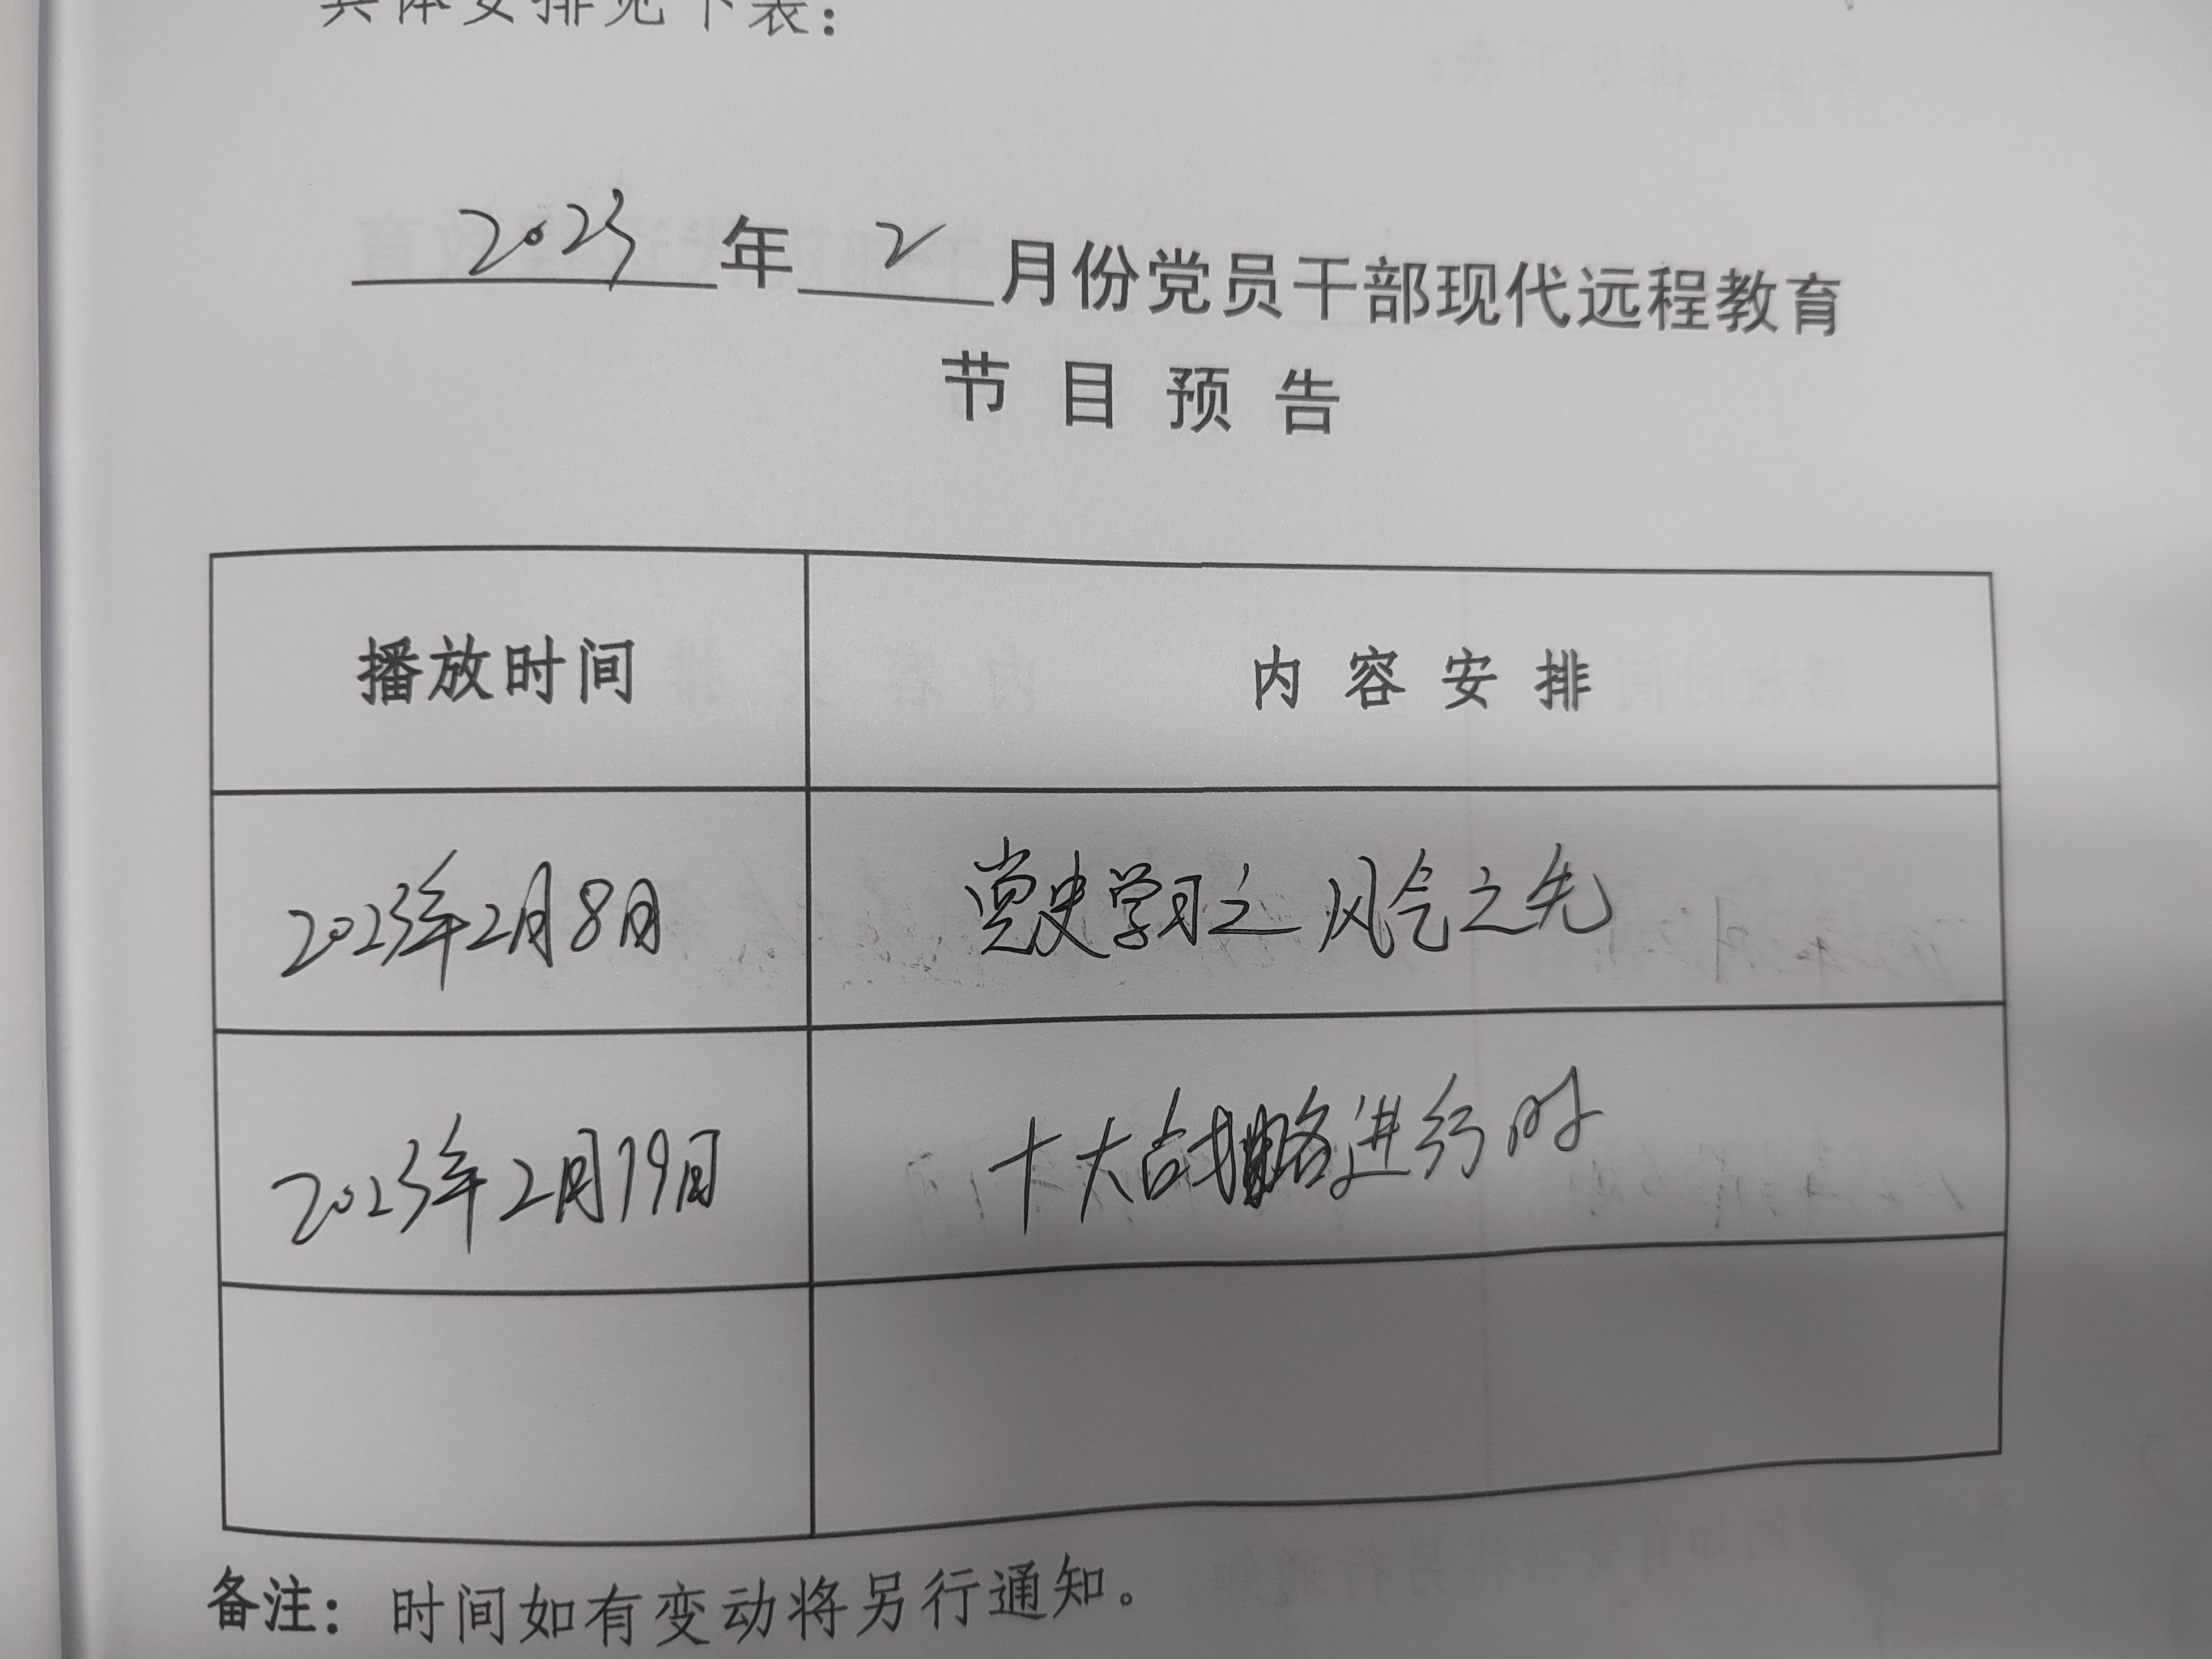 具体安排见下表：
2023年2月份党员干部现代远程教育
节目预告
播放时间 内容安排
2023年2月8日 党史学习之风气之先
2023年2月19日 十大战略进行时
备注：时间如有变动将另行通知。